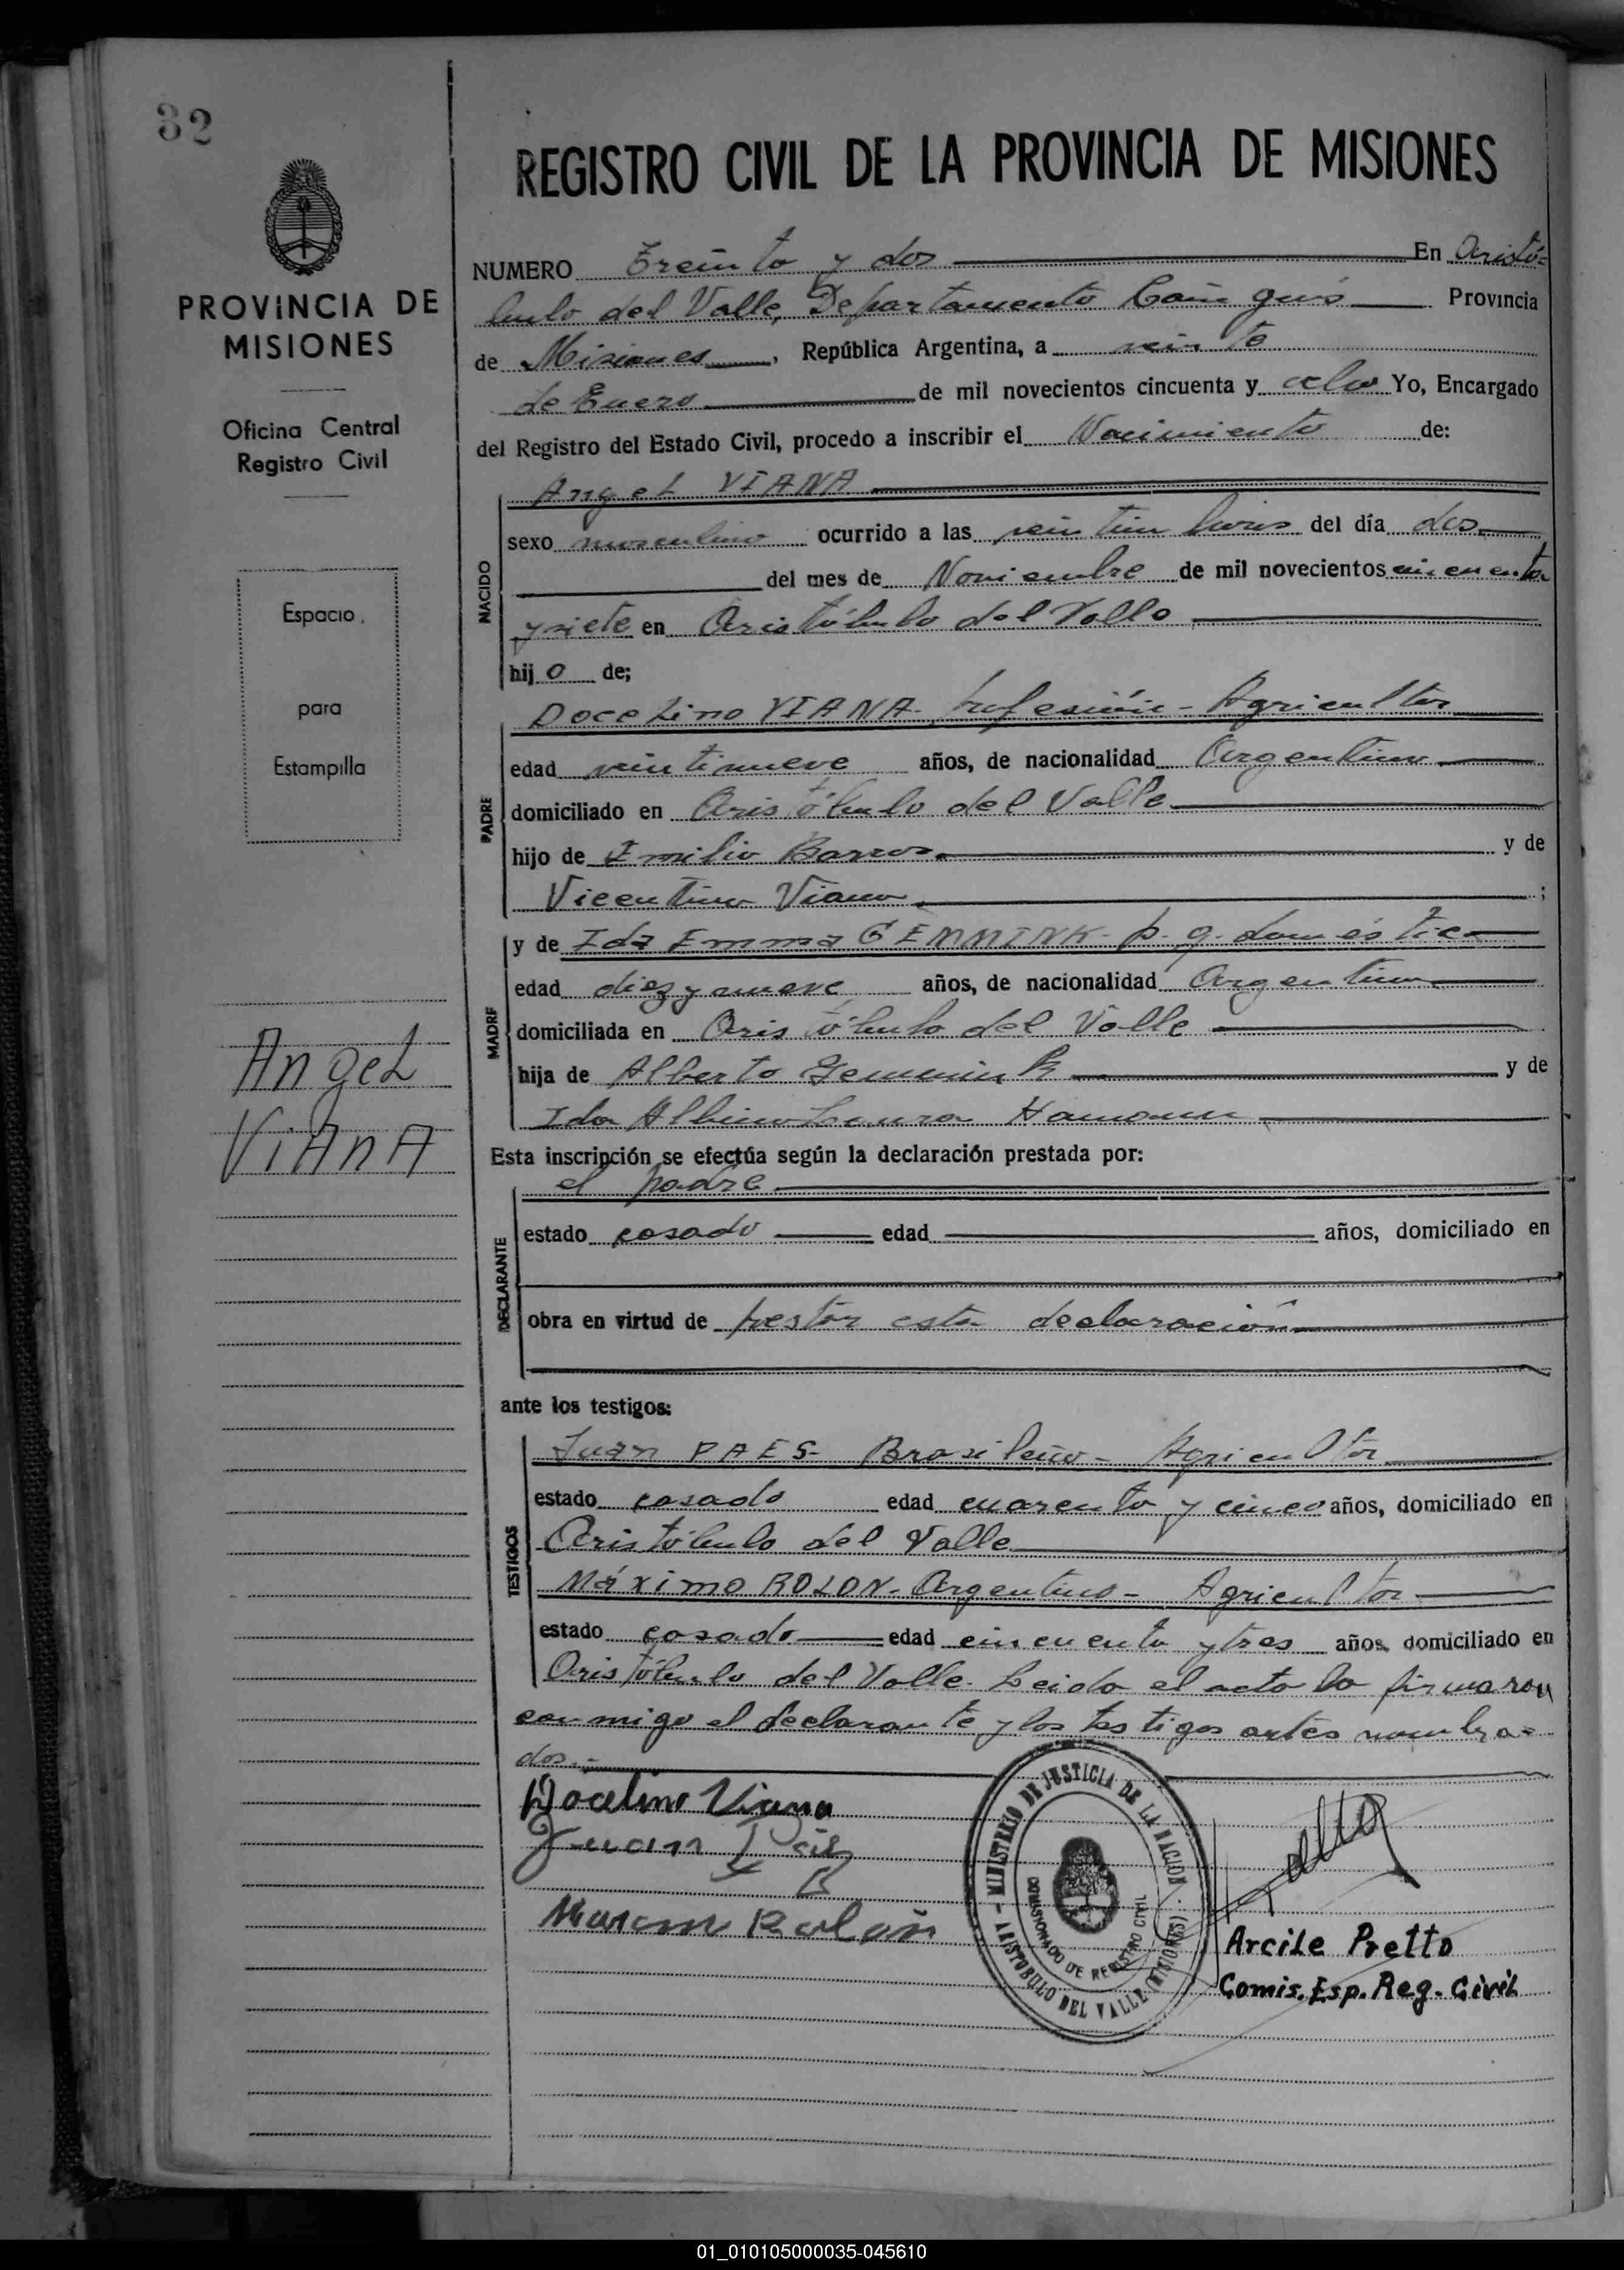 32
PROVINCIA DE
MISIONES
Oficina Central
Registro Civil
Espacio
para
Estampilla
Angel
Viana
REGISTRO CIVIL DE LA PROVINCIA DE MISIONES
NUMERO Treinta y dos En Aristó-
bulo del Valle, Departamento Cainguás Provincia
de Misiones, República Argentina, a veinte
de Enero de mil novecientos cincuenta y ocho Yo, Encargado
del Registro del Estado Civil, procedo a inscribir el Nacimiento de:
NACIDO
Angel VIANA
sexo masculino ocurrido a las veintiún horas del día dos
del mes de Noviembre de mil novecientos cincuenta
y siete en Aristóbulo del Valle
hijo de;
PADRE
Docelino VIANA. profesión - Agricultor
edad veintinueve años, de nacionalidad Argentino
domiciliado en Aristóbulo del Valle
hijo de Emilio Barros y de
Vicentina Viana ;
MADRE
y de Ida Emma GEMMINK. p. q. doméstic.
edad diez y nueve años, de nacionalidad Argentina
domiciliada en Aristóbulo del Valle
hija de Alberto Gemmink y de
Ida Albina Laura Hamann
Esta inscripción se efectúa según la declaración prestada por:
DECLARANTE
el padre
estado casado edad años, domiciliado en
obra en virtud de prestar esta declaración
ante los testigos:
TESTIGOS
Juan PAES- Brasileño - Agricultor
estado casado edad cuarenta y cinco años, domiciliado en
Aristóbulo del Valle
Máximo ROLON- Argentino - Agricultor
estado casado edad cincuenta y tres años, domiciliado en
Aristóbulo del Valle. Leida el acta la firmaron
conmigo el declarante y los testigos antes nombra-
dos.-
Docelino Viana
Juan
Rolon
- MINISTERIO DE JUSTICIA DE LA NACION -
ARISTOBULO DEL VALLE (MISIONES)
COMISIONADO DE REGISTRO CIVIL
Arcile Pretto
Comis. Esp. Reg. Civil
01_010105000035-045610